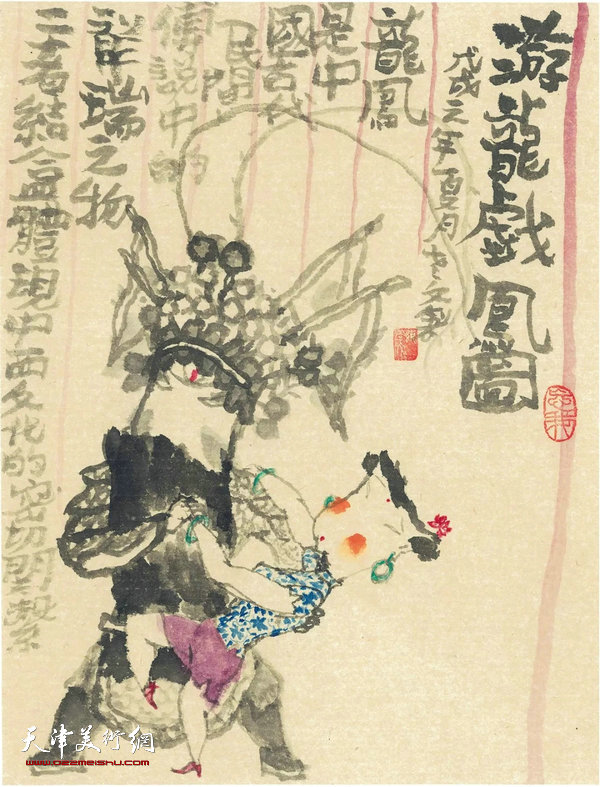 游龍戲鳳圖
戊戌元年夏月
龍鳳
是中
國古代
民間
傳說中的
祥瑞之物
二者結合體現中西文化的密切關繫
天津美術網
www.022meishu.com